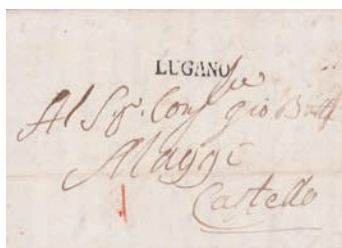 LUGANO
Al Sigr. Consre Gio Batt
Maggi
Castello